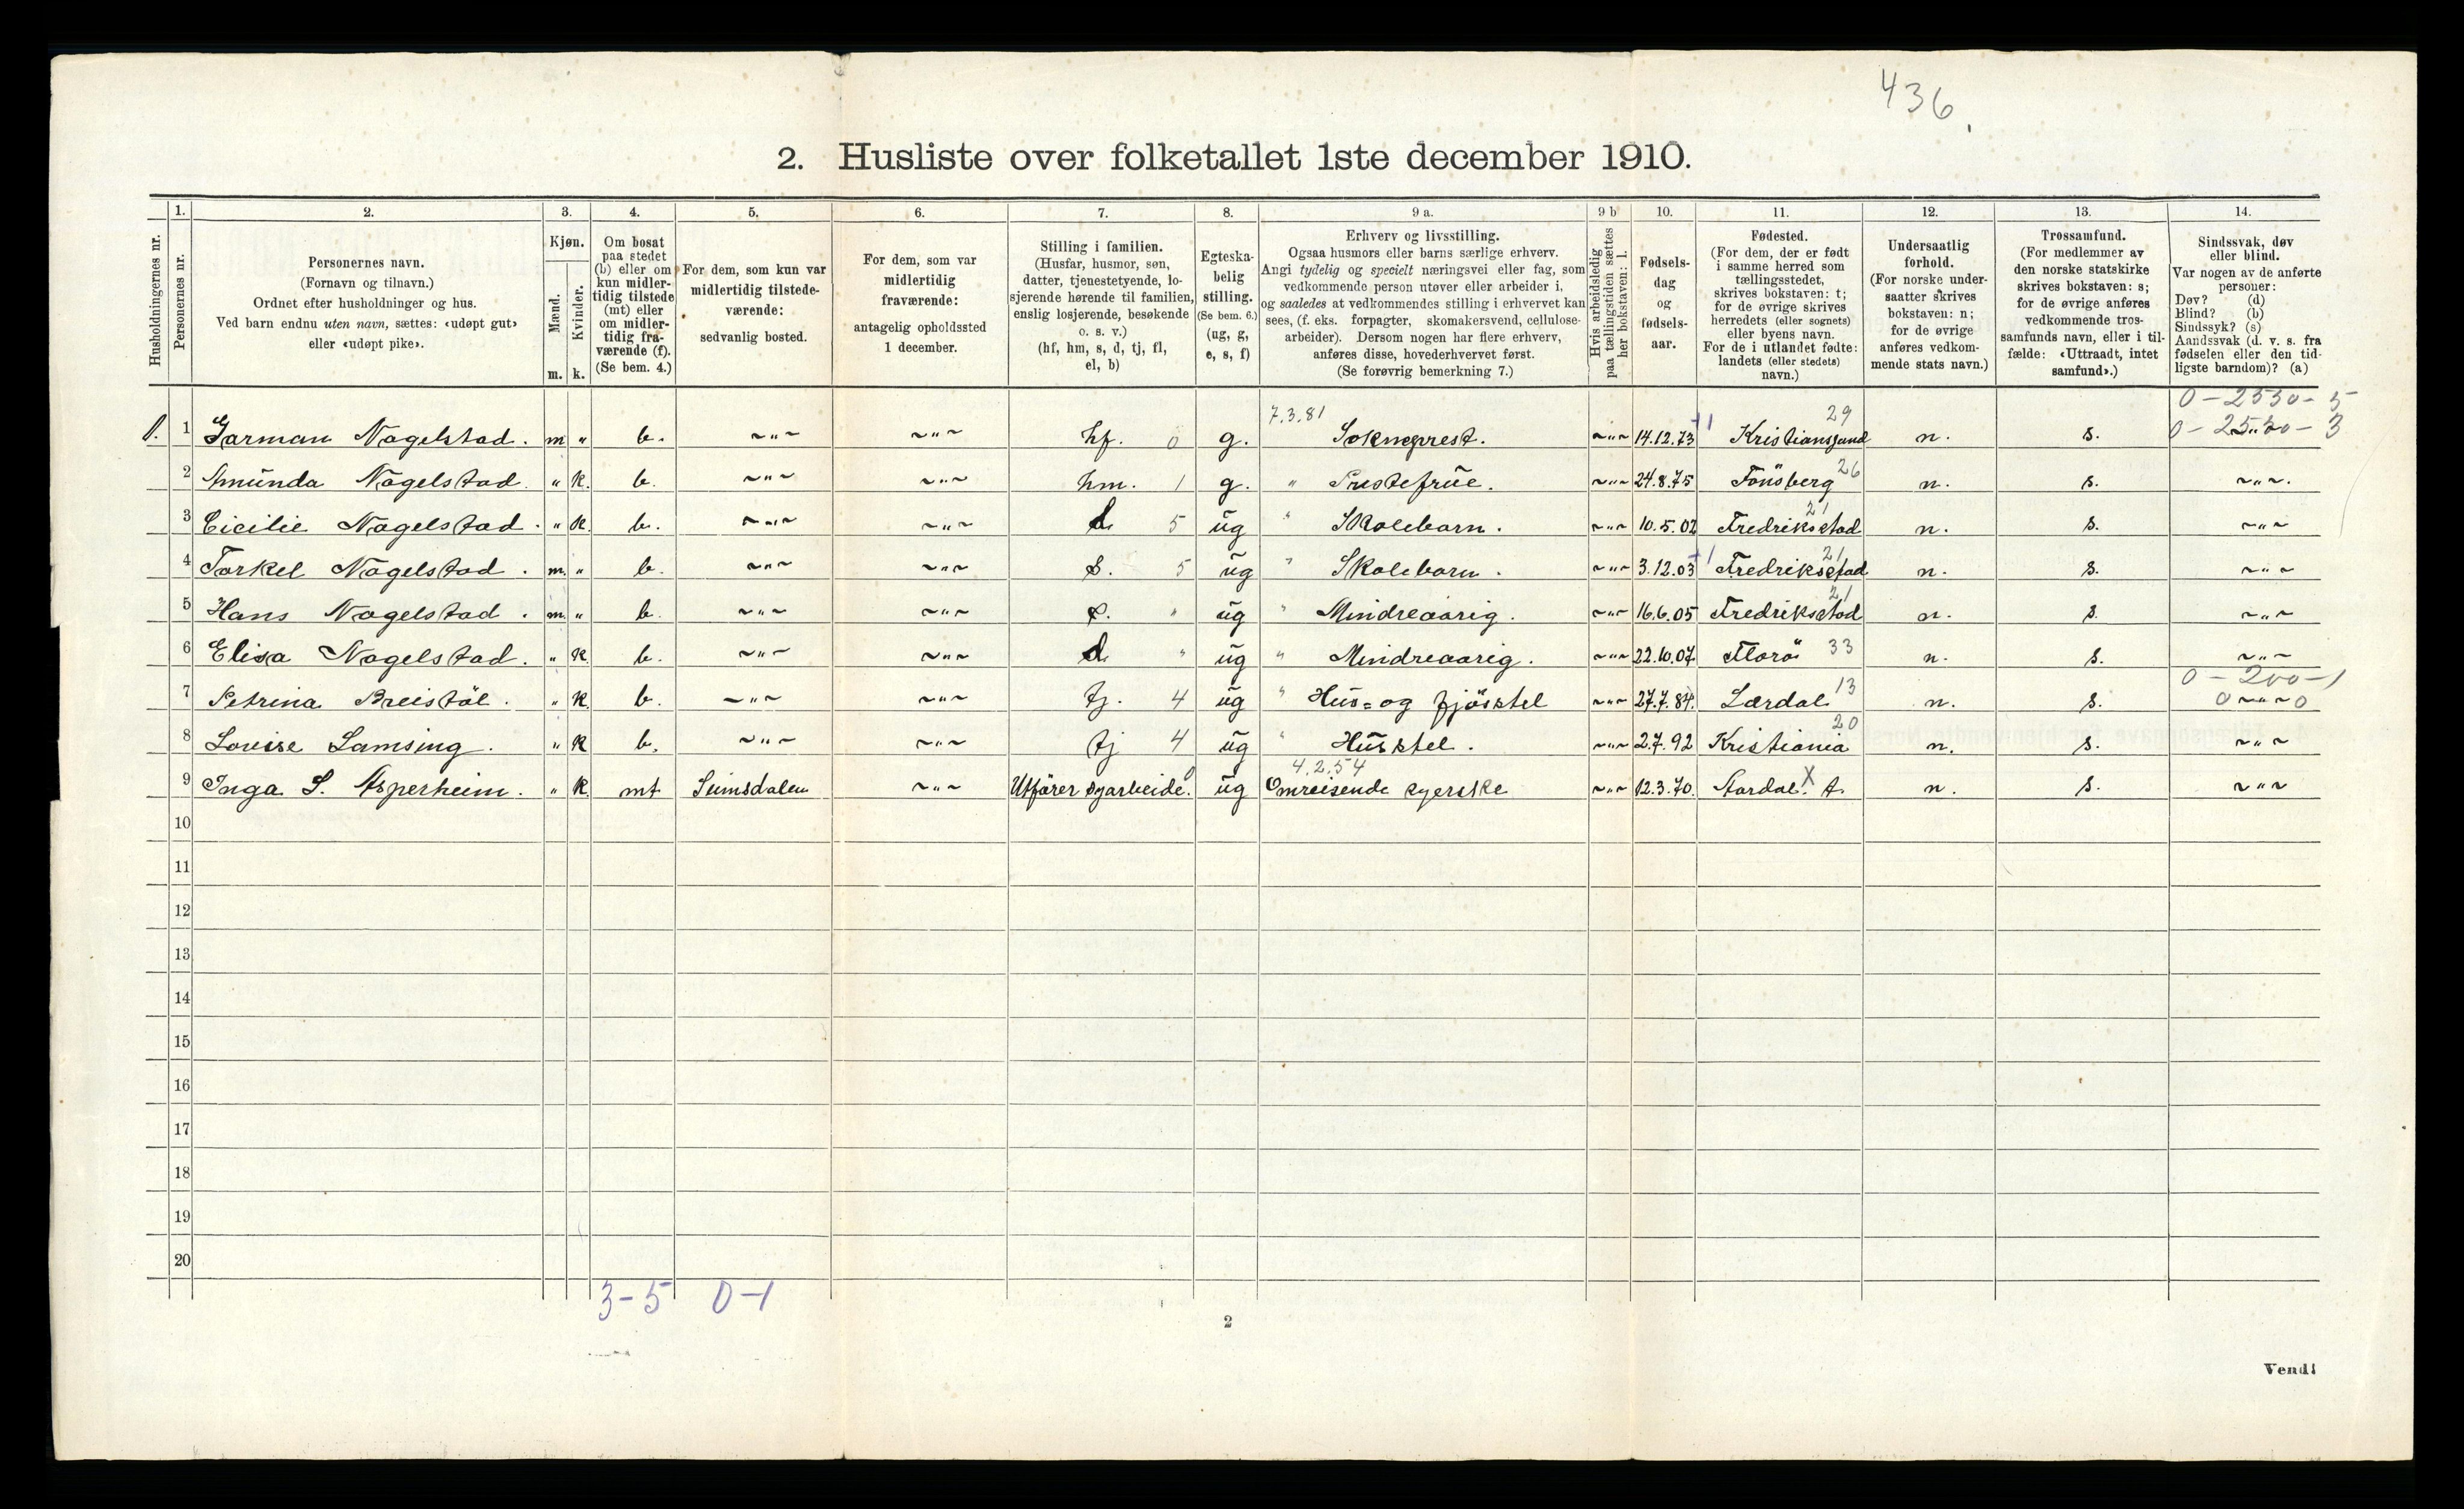 436.
2. Husliste over folketallet 1ste december 1910.
Husholdningernes nr.
1. Personernes nr.
2. Personernes navn.
(Fornavn og tilnavn.)
Ordnet efter husholdninger og hus.
Ved barn endnu uten navn, sættes: «udøpt gut»
eller «udøpt pike».
3. Kjøn.
Mænd. m.
Kvinder. k.
4. Om bosat
paa stedet
(b) eller om
kun midler-
tidig tilstede
(mt) eller
om midler-
tidig fra-
værende (f).
(Se bem. 4.)
5. For dem, som kun var
midlertidig tilstede-
værende:
sedvanlig bosted.
6. For dem, som var
midlertidig
fraværende:
antagelig opholdssted
1 december.
7. Stilling i familien.
(Husfar, husmor, søn,
datter, tjenestetyende, lo-
sjerende hørende til familien,
enslig losjerende, besøkende
o. s. v.)
(hf, hm, s, d, tj, fl,
el, b)
8. Egteska-
belig
stilling.
(Se bem. 6.)
(ug, g,
e, s, f)
9 a. Erhverv og livsstilling.
Ogsaa husmors eller barns særlige erhverv.
Angi tydelig og specielt næringsvei eller fag, som
vedkommende person utøver eller arbeider i,
og saaledes at vedkommendes stilling i erhvervet kan
sees, (f. eks. forpagter, skomakersvend, cellulose-
arbeider). Dersom nogen har flere erhverv,
anføres disse, hovederhvervet først.
(Se forøvrig bemerkning 7.)
9 b Hvis arbeidsledig
paa tællingstiden sættes
her bokstaven: l.
10. Fødsels-
dag
og
fødsels-
aar.
11. Fødested.
(For dem, der er født
i samme herred som
tællingsstedet,
skrives bokstaven: t;
for de øvrige skrives
herredets (eller sognets)
eller byens navn.
For de i utlandet fødte:
landets (eller stedets)
navn.)
12. Undersaatlig
forhold.
(For norske under-
saatter skrives
bokstaven: n;
for de øvrige
anføres vedkom-
mende stats navn.)
13. Trossamfund.
(For medlemmer av
den norske statskirke
skrives bokstaven: s;
for de øvrige anføres
vedkommende tros-
samfunds navn, eller i til-
fælde: «Uttraadt, intet
samfund».)
14. Sindssvak, døv
eller blind.
Var nogen av de anførte
personer:
Døv? (d)
Blind? (b)
Sindssyk? (s)
Aandssvak (d. v. s. fra
fødselen eller den tid-
ligste barndom)? (a)
7.3.81 29 0-2530-5
1. 1 Garman Nagelstad. m " b. ~"~ ~"~ hf. 0 g. Sokneprest. ~"~ 14.12.73 Kristianssund n. s. 0-2530-3
2 Amunda Nagelstad. " k. b. ~"~ ~"~ hm. 1 g. " Prestefrue. ~"~ 24.8.75 Tönsberg 26 n. s. ~"~
3 Cicilie Nagelstad. " k. b. ~"~ ~"~ d. 5 ug " Skolebarn. ~"~ 10.5.02 Fredriksstad 21 n. s. ~"~
4 Torkel Nagelstad. m. " b. ~"~ ~"~ s. 5 ug " Skolebarn. ~"~ 3.12.03 Fredriksstad 21 n. s. ~"~
5 Hans Nagelstad. m. " b. ~"~ ~"~ s. " ug " Mindreaarig. ~"~ 16.6.05 Fredriksstad 21 n. s. ~"~
6 Elisa Nagelstad. " k. b. ~"~ ~"~ d. " ug " Mindreaarig. ~"~ 22.10.07 Florö 33 n. s. ~"~
0-200-1
7 Petrina Breistöl. " k. b. ~"~ ~"~ tj. 4 ug " Hus= og fjösktel ~"~ 27.7.84. Lærdal 13 n. s. 0~"~0
8 Lovise Lamsing. " k b. ~"~ ~"~ tj 4 ug " Husktel. ~"~ 2.7.92 Kristiania 20 n. s. ~"~
4.2.54
9 Inga S. Asperheim. " k. mt Seimsdalen ~"~ Utförer syarbeide. ug Omreisende syerske ~"~ 12.3.70. Aardal. X t. n. s. ~"~
10
11
12
13
14
15
16
17
18
19
20
3-5 0-1
2
Vend!